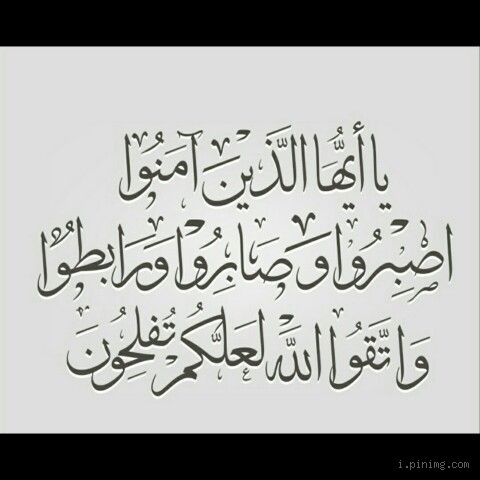 يا أيُّهَا الَّذين آمَنُوا
اصْبِرُوا وَصَابِرُوا وَرَابِطُوا
وَاتَّقُوا اللَّهَ لَعَلَّكُمْ تُفْلِحُونَ
i.pinimg.com